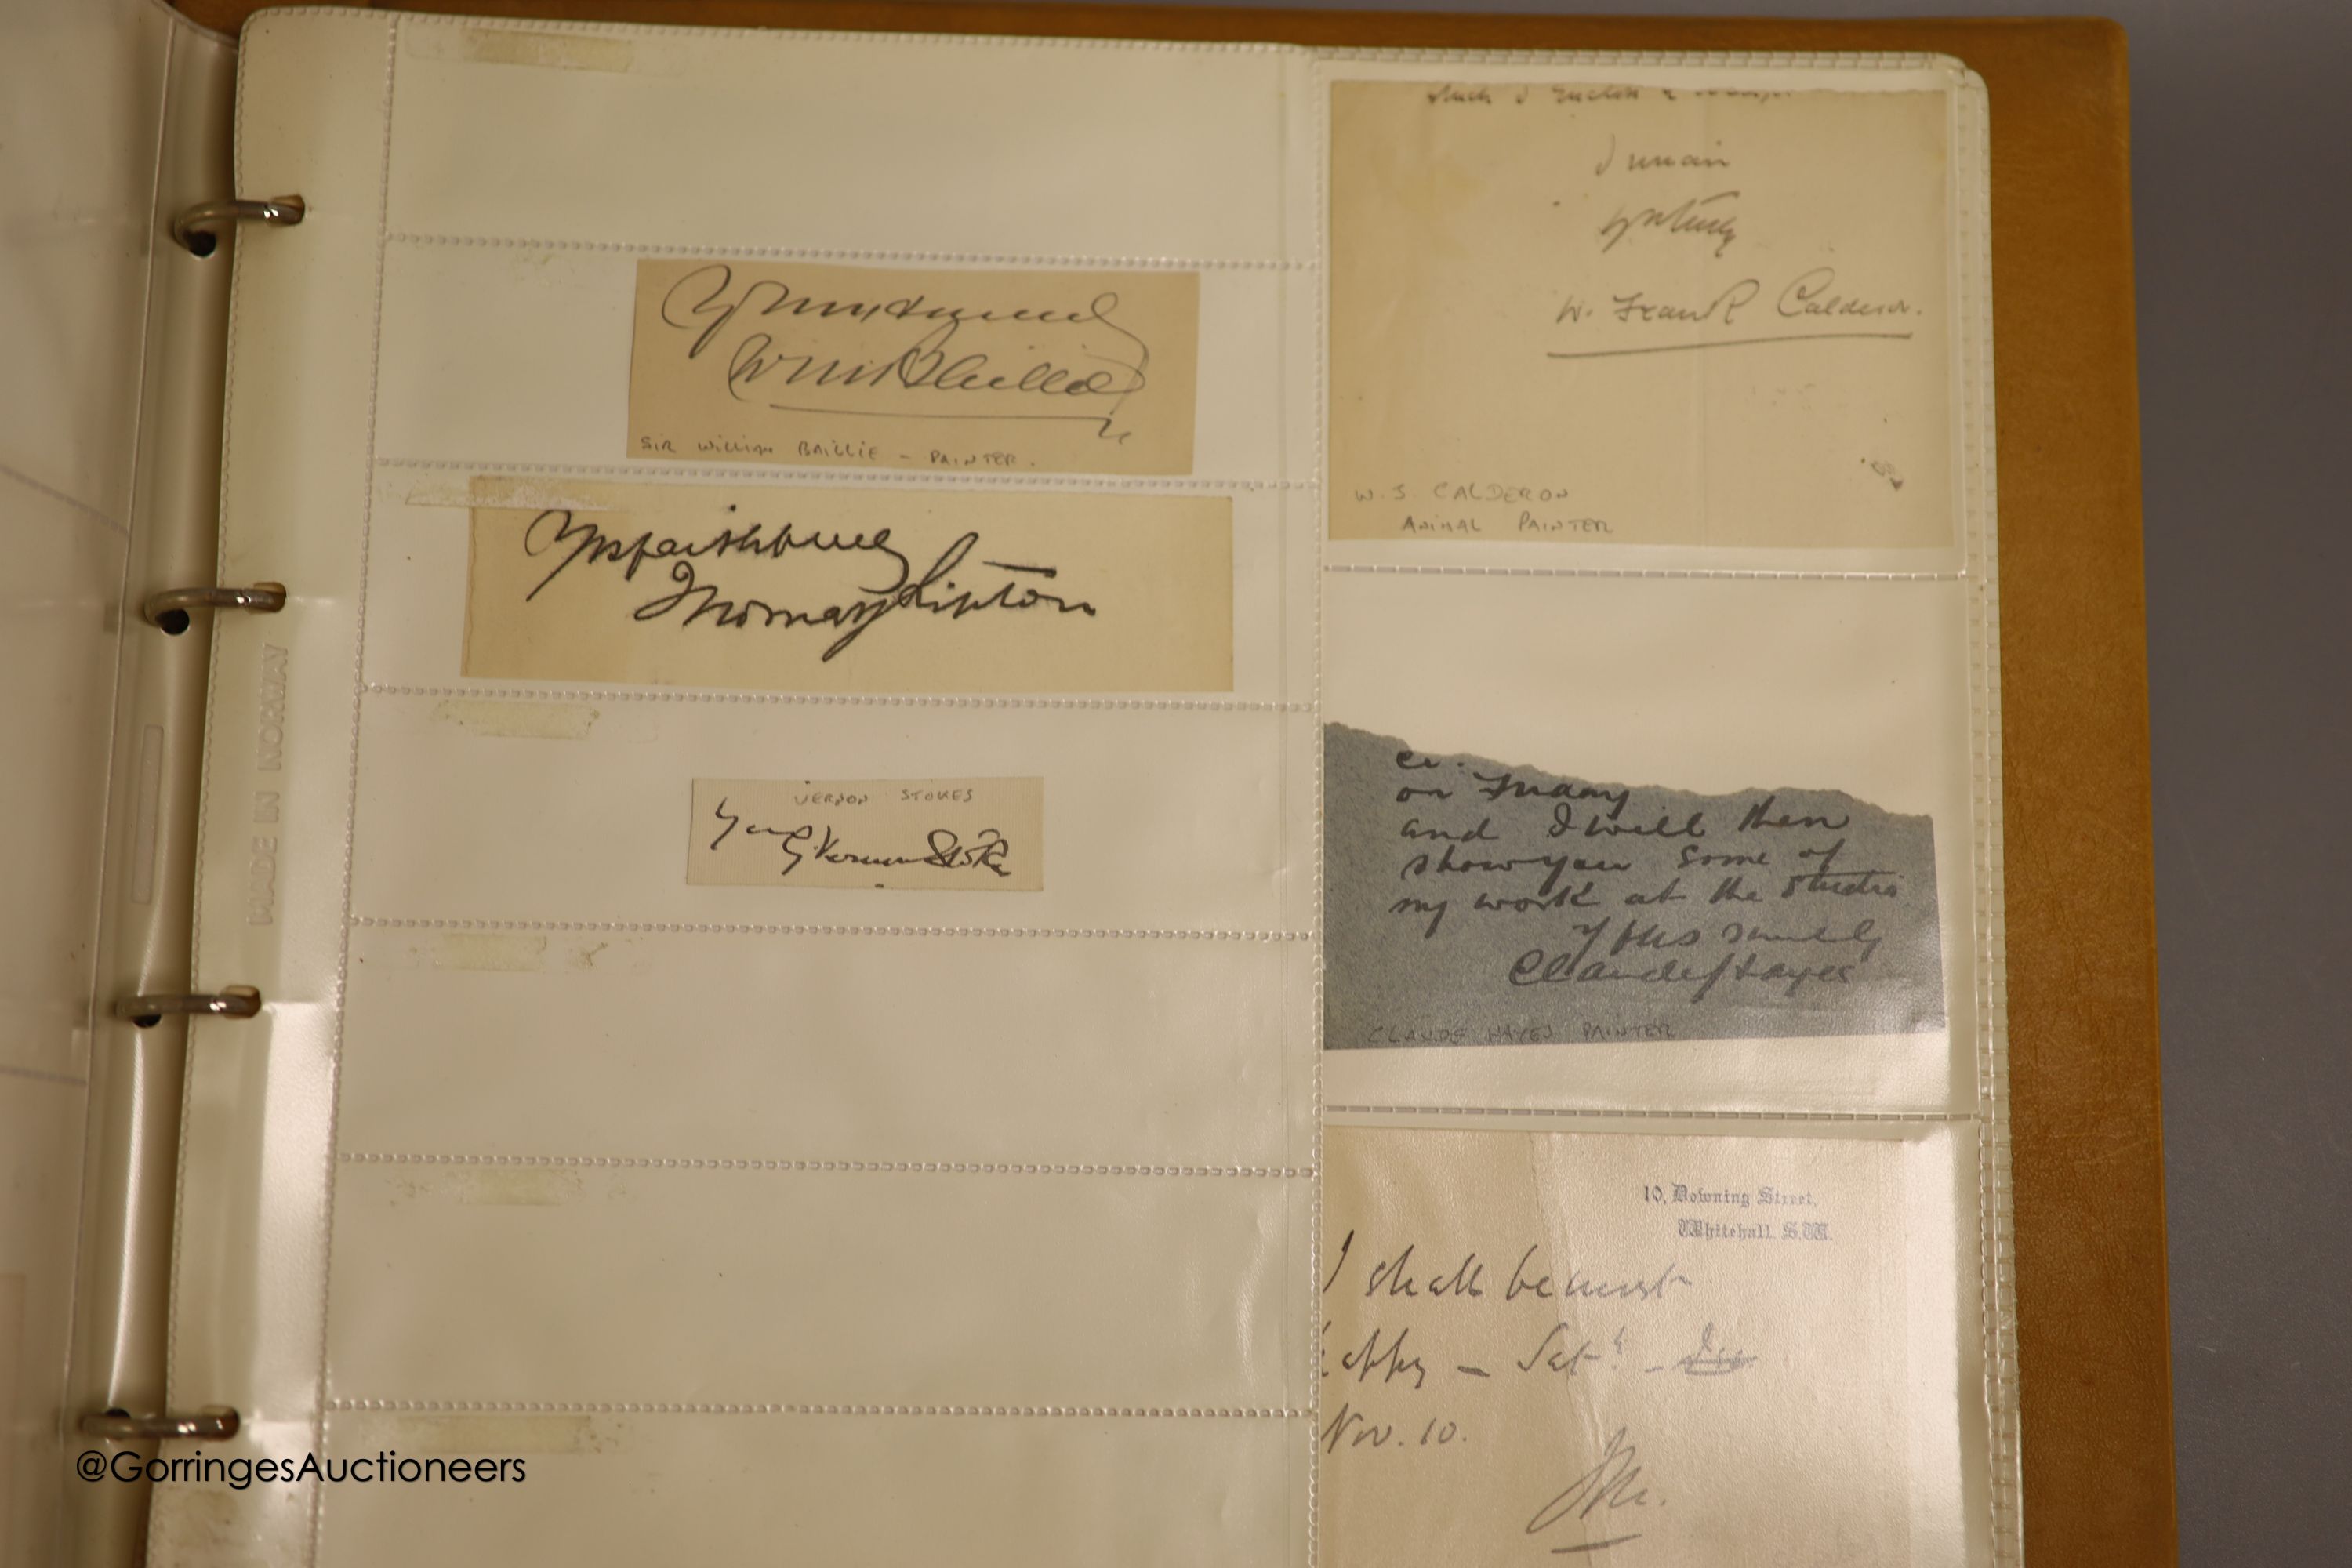 WmBaillie
SIR WILLIAM BAILLIE - PAINTER.
Yrs faithfully
Thomas J Lipton
VERNON STOKES
Yours
G. Vernon Stokes
MADE IN NORWAY
I remain
W. Frank Calderon.
W. S. CALDERON
ANIMAL PAINTER
on
and I will then
show you some of
my work at the studio
Yrs sincerely
Claude Hayes
CLAUDE HAYES PAINTER
10, Downing Street,
Whitehall. S.W.
I shall be most
happy - Sat. -
Nov. 10.
@GorringesAuctioneers